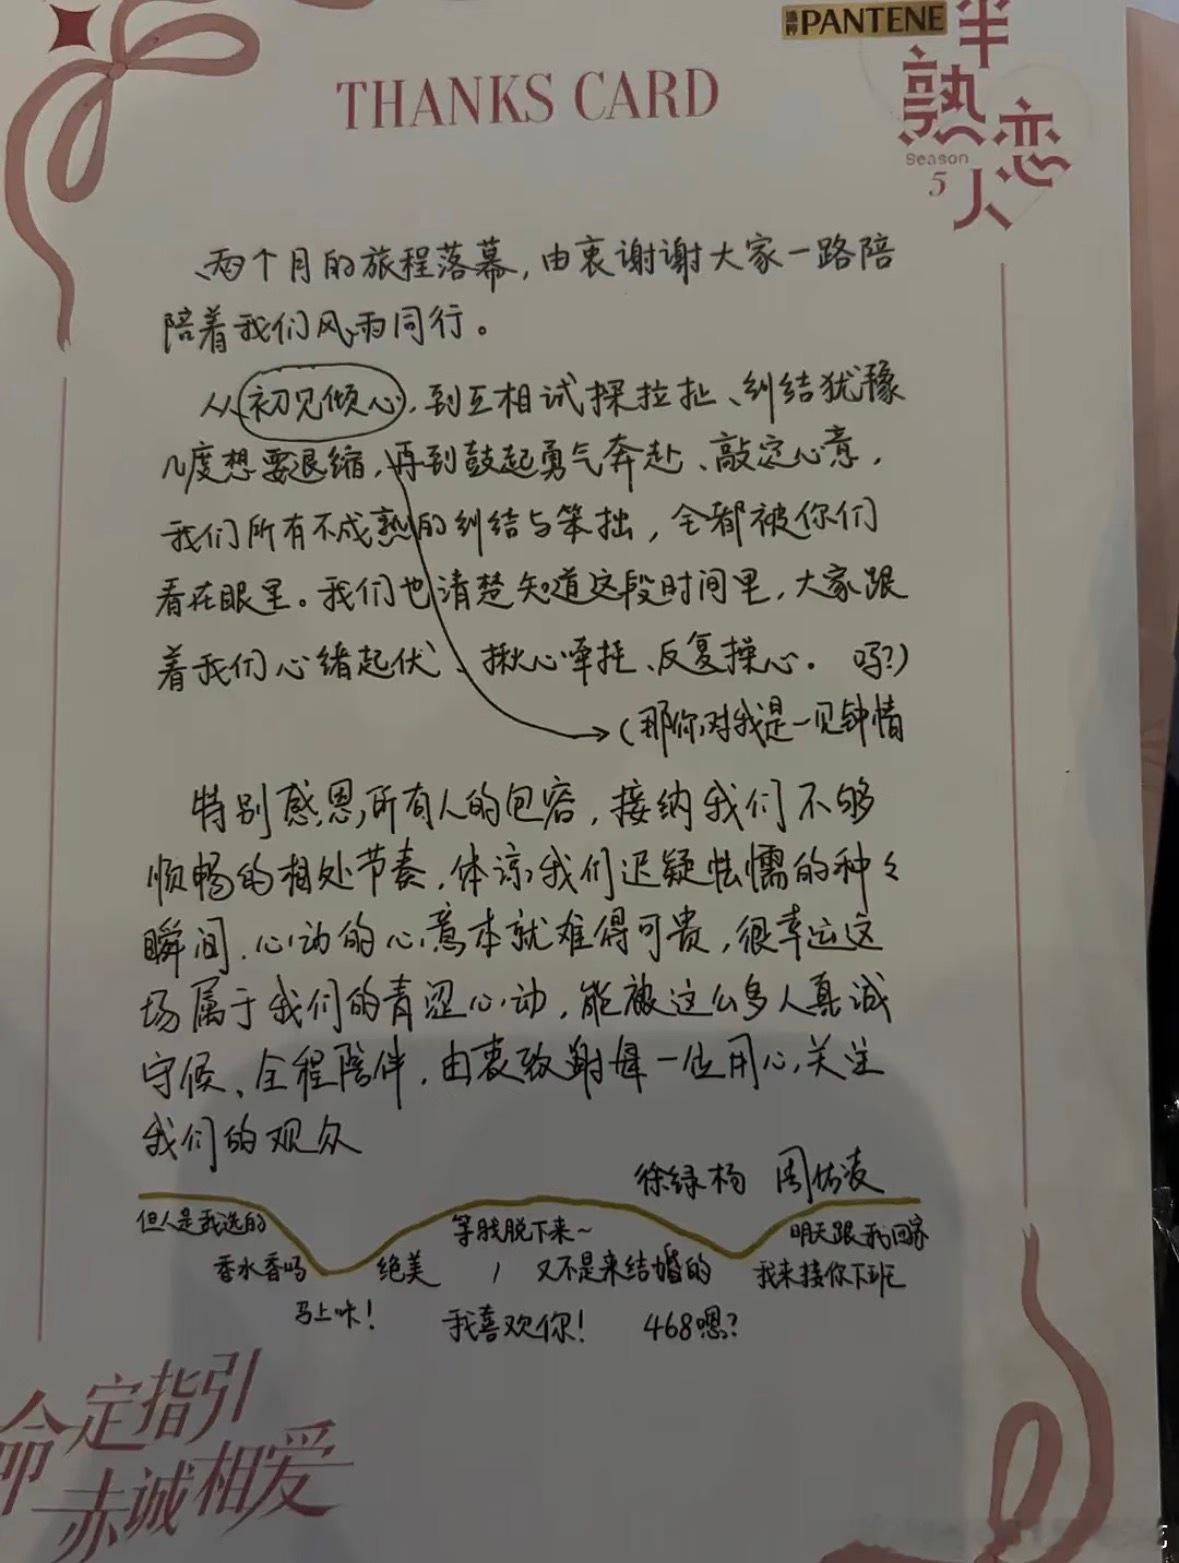 潘婷 PANTENE
THANKS CARD
半熟恋人
Season 5
两个月的旅程落幕，由衷谢谢大家一路陪
陪着我们风雨同行。
从初见倾心，到互相试探拉扯、纠结犹豫
几度想要退缩，再到鼓起勇气奔赴、敲定心意，
我们所有不成熟的纠结与笨拙，全都被你们
看在眼里。我们也清楚知道这段时间里，大家跟
着我们心绪起伏、揪心牵挂、反复操心。 吗?)
(那你对我是一见钟情
特别感恩所有人的包容，接纳我们不够
顺畅的相处节奏，体谅我们迟疑怯懦的种々
瞬间，心动的心意本就难得可贵，很幸运这
场属于我们的青涩心动，能被这么多人真诚
守候、全程陪伴，由衷致谢每一位用心关注
我们的观众
徐绿杨 周佑凌
但人是我选的 等我脱下来~ 明天跟我回家
香水香吗 绝美 , 又不是来结婚的 我来接你下班
马上咔! 我喜欢你! 468嗯?
命定指引
赤诚相爱